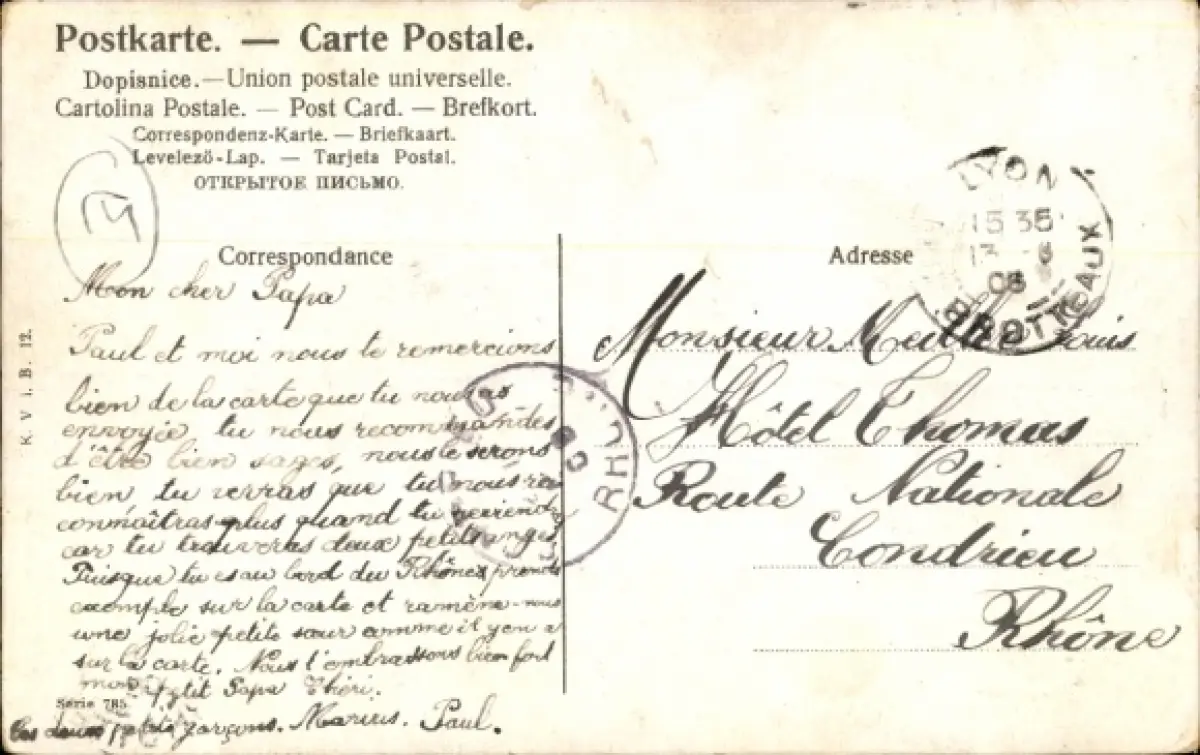 Postkarte. — Carte Postale.
Dopisnice. — Union postale universelle.
Cartolina Postale. — Post Card. — Brefkort.
Correspondenz-Karte. — Briefkaart.
Levelezö-Lap. — Tarjeta Postal.
ОТКРЫТОЕ ПИСЬМО.
14
Correspondance
Mon cher Papa
Paul et moi nous te remercions
bien de la carte que tu nous as
envoyée tu nous recommandes
d'être bien sages, nous le serons
bien tu verras que tu nous re
connaîtras plus quand tu reviendras
car tu trouveras deux petits anges.
Puisque tu es au bord du Rhône prends
exemple sur la carte et ramène-nous
une jolie petite sœur comme il y en a
sur la carte. Nous t'embrassons bien fort
mon petit Papa Chéri.
Les deux petits garçons. Marius. Paul.
Serie 785
K. V i. B. 12.
Adresse
LYON
15 35
13
08
BROTTEAUX
Monsieur Louis
Hôtel Thomas
Route Nationale
Condrieu
Rhône
RH